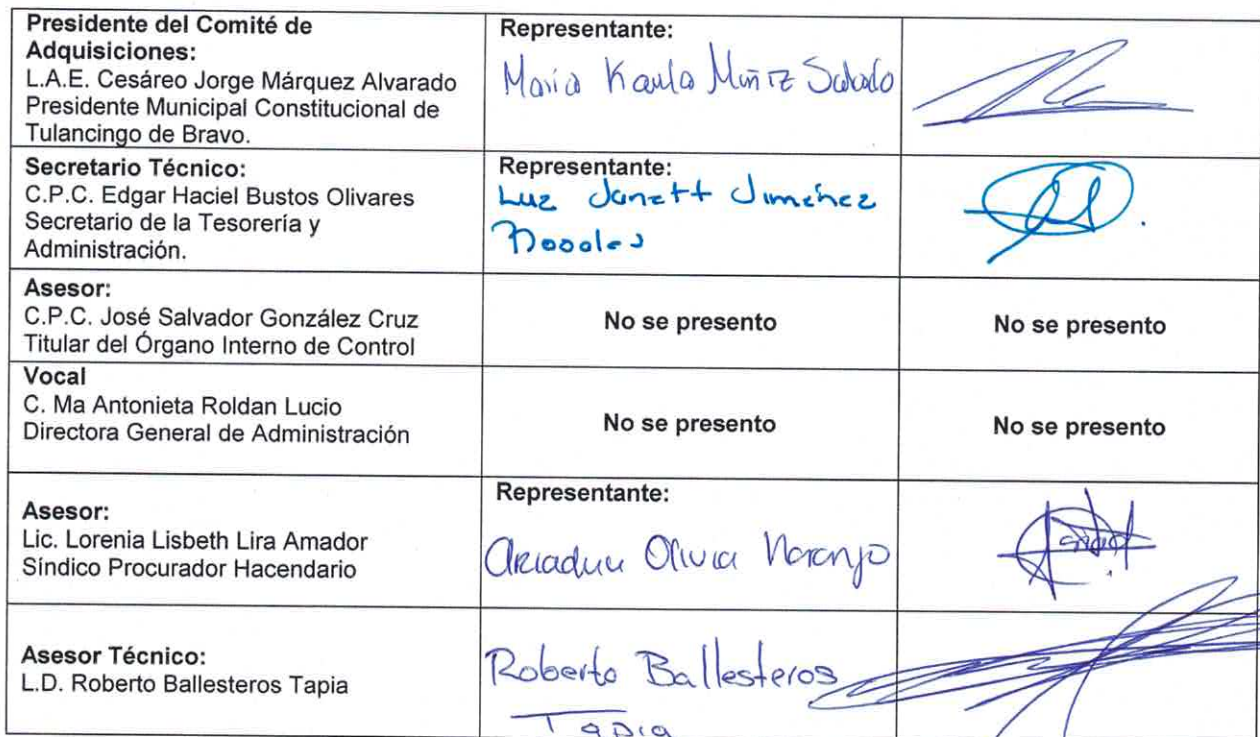 Presidente del Comité de
Adquisiciones:
L.A.E. Cesáreo Jorge Márquez Alvarado
Presidente Municipal Constitucional de
Tulancingo de Bravo.
Representante:
Maria Karla Muñiz Salado
Secretario Técnico:
C.P.C. Edgar Haciel Bustos Olivares
Secretario de la Tesorería y
Administración.
Representante:
Luz Janett Jimenez
Asesor:
C.P.C. José Salvador González Cruz
Titular del Órgano Interno de Control
No se presento
No se presento
Vocal
C. Ma Antonieta Roldan Lucio
Directora General de Administración
No se presento
No se presento
Asesor:
Lic. Lorenia Lisbeth Lira Amador
Síndico Procurador Hacendario
Representante:
Olivia Naranjo
Asesor Técnico:
L.D. Roberto Ballesteros Tapia
Roberto Ballesteros
Tapia